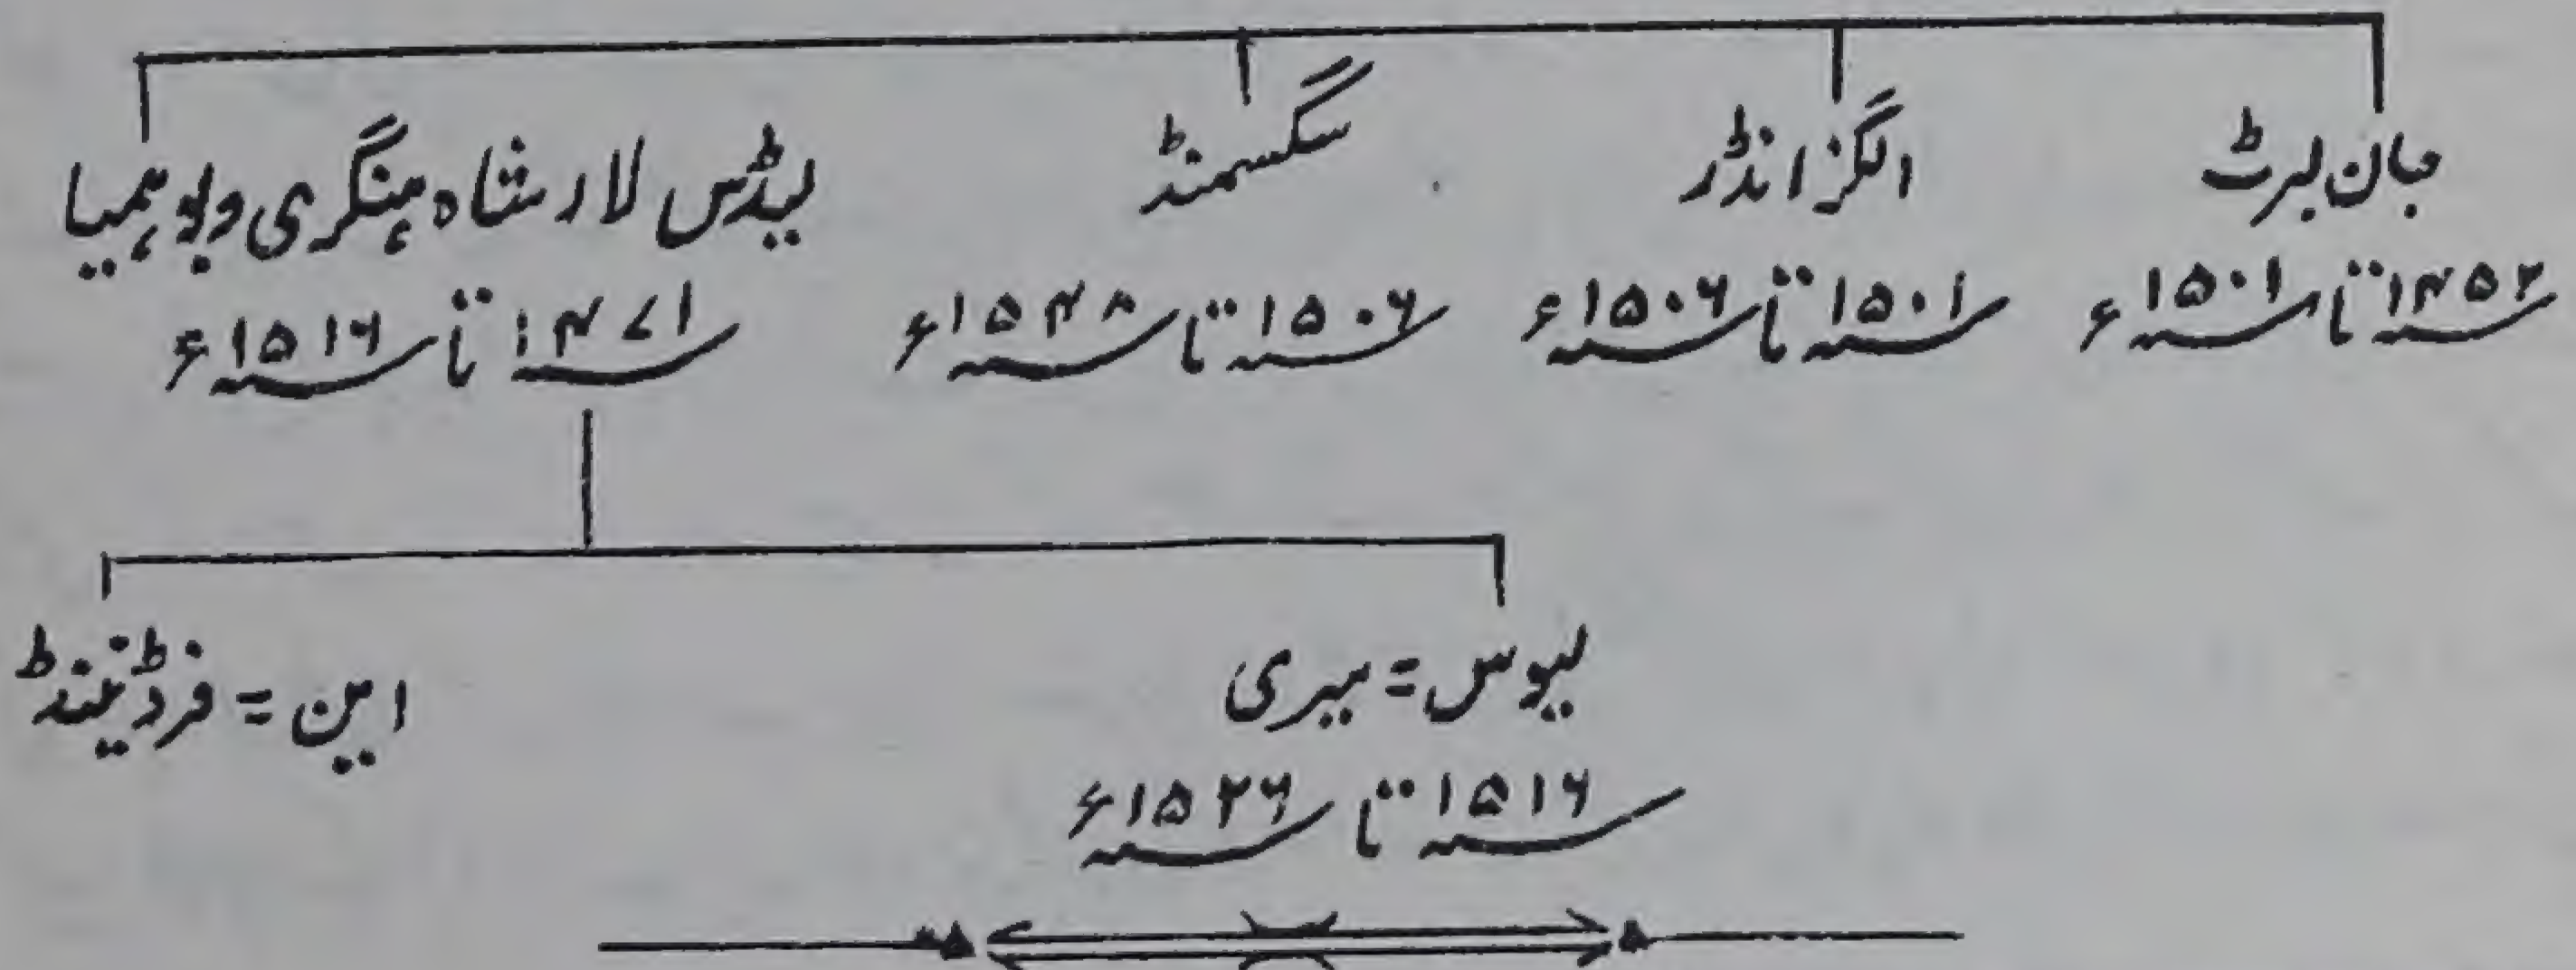 جان لبرٹ
۱۴۵۲ تا ۱۵۰۱ء
الگزانڈر
۱۵۰۱ تا ۱۵۰۶ء
سگسمنڈ
۱۵۰۶ تا ۱۵۴۸ء
لیڈس لار شاہ ہنگری و بوہمیا
۱۴۷۱ تا ۱۵۱۶ء
لیوس = میری
۱۵۱۶ تا ۱۵۲۶ء
این = فرڈیننڈ